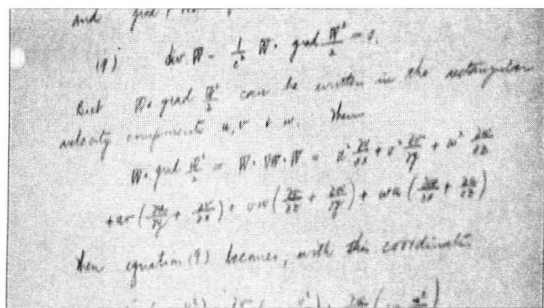 and grad
(9) div W - 1/c² W · grad W²/2 = 0.
But W · grad W²/2 can be written in the rectangular
velocity components u, v + w. Then
W · grad W²/2 = W · ∇W · W = u² ∂u/∂x + v² ∂v/∂y + w² ∂w/∂z
+ uv (∂u/∂y + ∂v/∂x) + vw (∂v/∂z + ∂w/∂y) + wu (∂w/∂x + ∂u/∂z)
then equation (9) becomes, with this coordinate